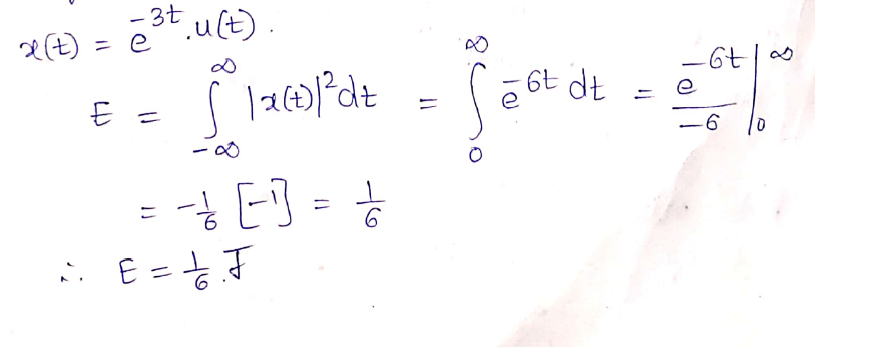 x(t) = e^{-3t}.u(t).
E = ∫_{-∞}^{∞} |x(t)|² dt = ∫_{0}^{∞} e^{-6t} dt = e^{-6t}/-6 |_{0}^{∞}
= -1/6 [-1] = 1/6
∴ E = 1/6 . J